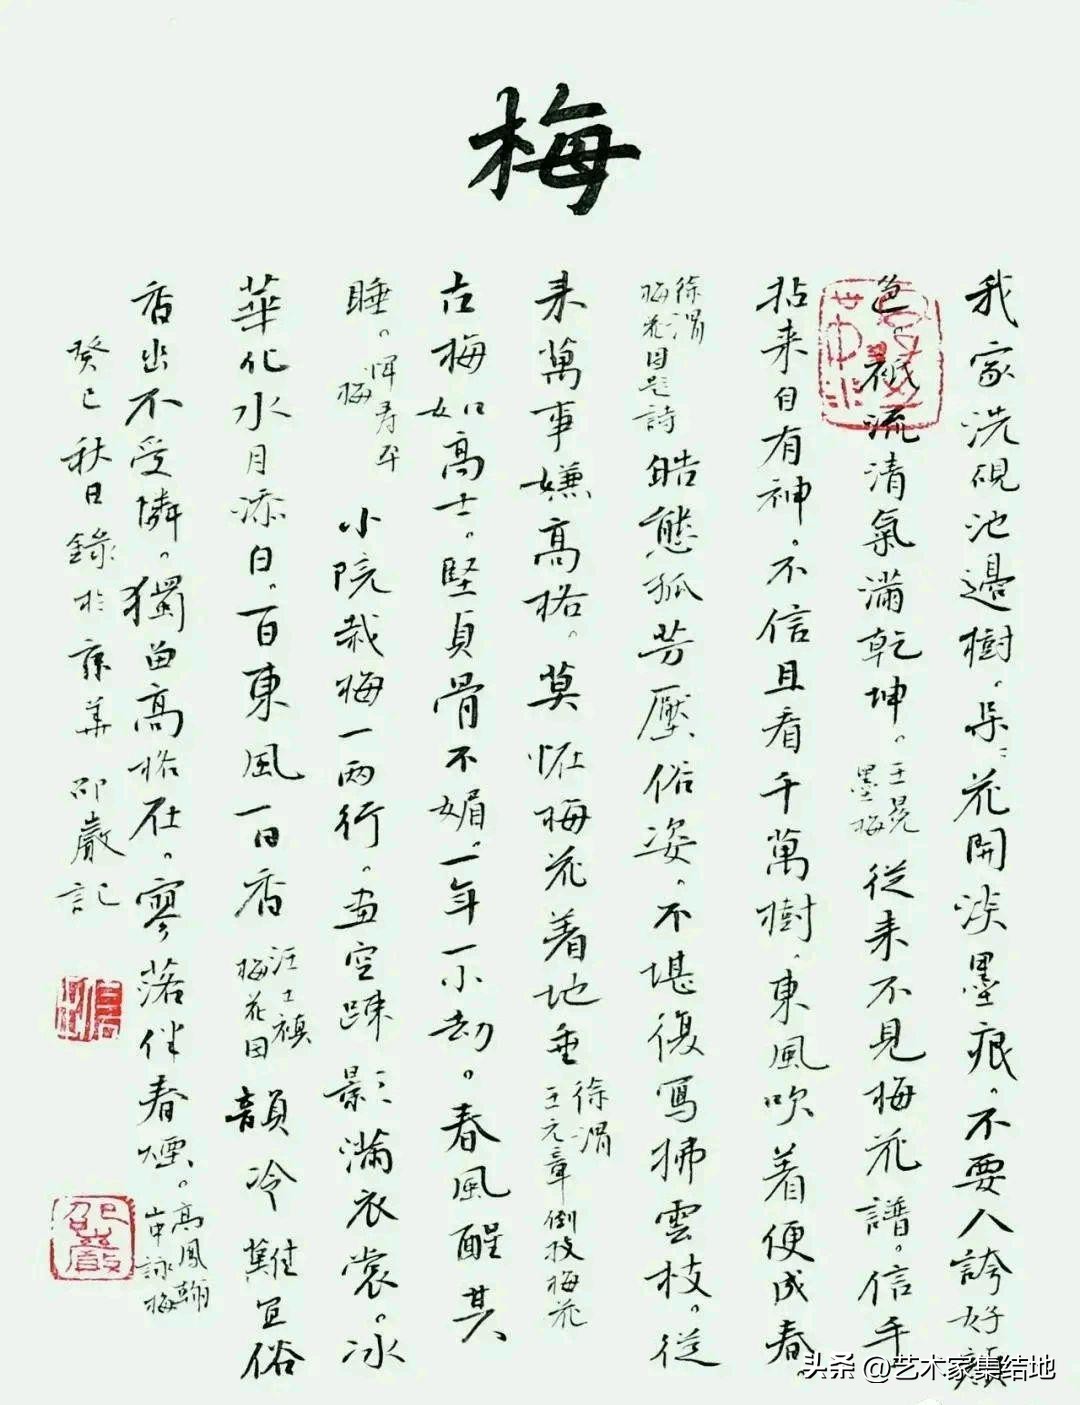 梅
我家洗硯池邊樹。朵：花開淡墨痕。不要人誇好顔
色。祗流清氣滿乾坤。王冕墨梅 從来不見梅花譜。信手
拈来自有神。不信且看千萬樹、東風吹着便成春
徐渭梅花自題詩 皓態孤芳壓俗姿。不堪復寫拂雲枝。從
来萬事嫌高格。莫怪梅花着地垂 徐渭王元章倒枝梅花
古梅如高士。堅貞骨不媚。一年一小劫。春風醒其
睡。惲壽平梅 小院栽梅一兩行。畫空疎影滿衣裳。冰
華化水月添白。一日東風一日香 汪士禛梅花図 韻冷難宜俗
香出不受憐。獨留高格在。寥落伴春煙。高鳳翰 詠梅
癸巳秋日錄於京華 邵巖記
邵巖
头条 @艺术家集结地